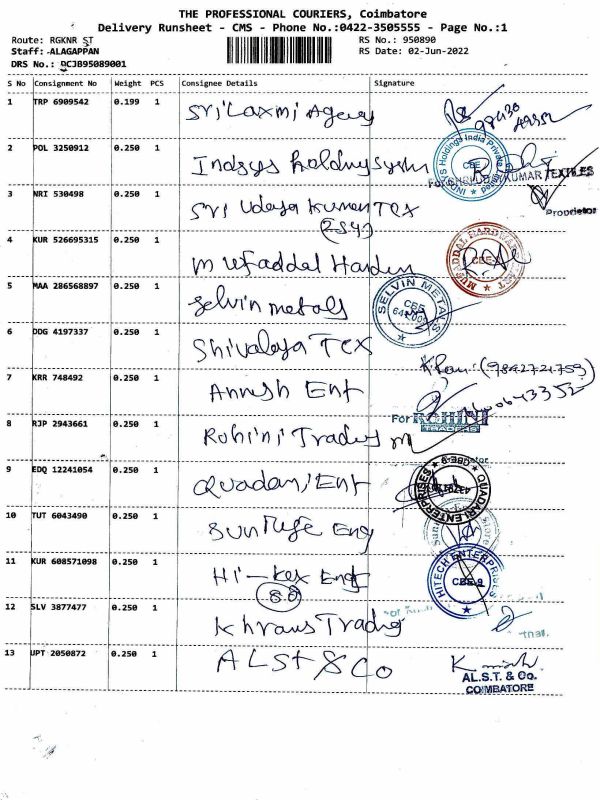 THE PROFESSIONAL COURIERS, Coimbatore
Delivery Runsheet - CMS - Phone No.:0422-3505555 - Page No.:1
Route: RGKNR ST RS No.: 950890
Staff: ALAGAPPAN RS Date: 02-Jun-2022
DRS No.: DCJB95089001
S No Consignment No Weight PCS Consignee Details Signature
1 TRP 6909542 0.199 1 Sri Laxmi Agency
98430
49352
2 POL 3250912 0.250 1 Indsys Holdings System
INDSYS Holdings India Private Limited CBE
For KUMAR TEXTILES
3 NRI 530498 0.250 1 Sri Udaya Kumar TEX
Proprietor
4 KUR 526695315 0.250 1 Mufaddal Harden
MUFADDAL HARDWARE MART CBE
5 MAA 286568897 0.250 1 Selvin metals
SELVIN METALS CBE
6 DDG 4197337 0.250 1 Shivalaya TEX
7 KRR 748492 0.250 1 Annush Ent
8 RJP 2943661 0.250 1 Rohini Traders
For ROHINI TRADERS
9 EDQ 12241054 0.250 1 Quadari Ent
QUADARI ENTERPRISES CBE-9
10 TUT 6043490 0.250 1 Sunlife Eng
11 KUR 608571098 0.250 1 Hi-Tex Ent
HITECH ENTERPRISES CBE-9
12 SLV 3877477 0.250 1 Khraus Trading
13 UPT 2050872 0.250 1 ALST & Co
AL.S.T. & Co.
COIMBATORE